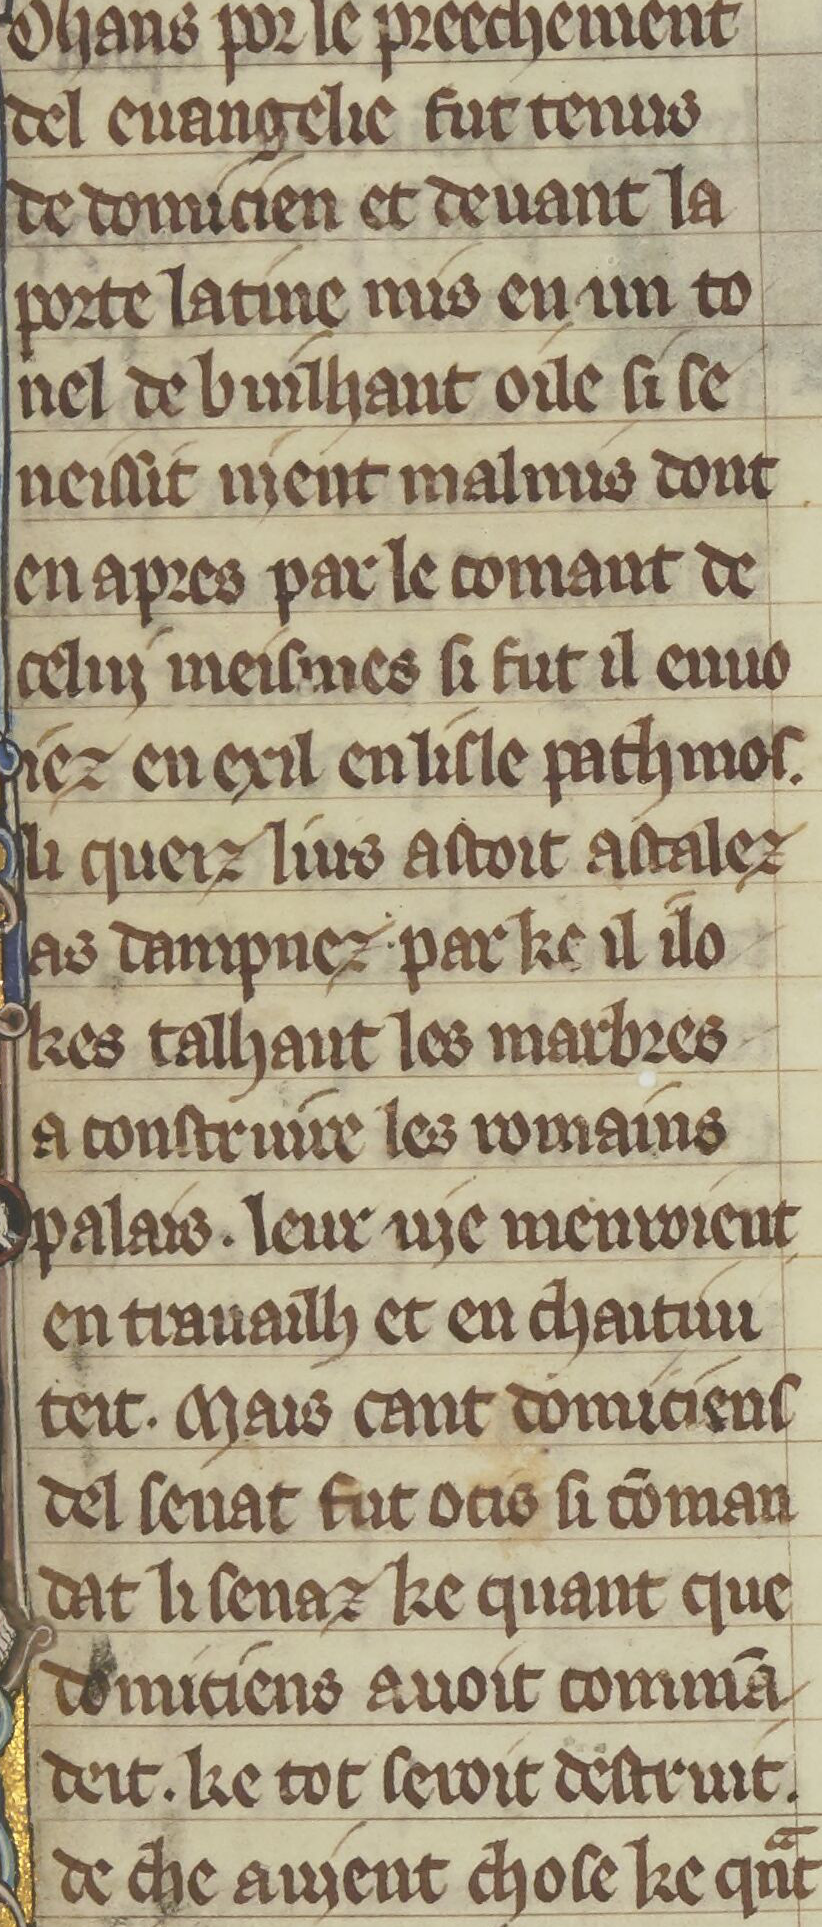 Ohans por le preechement
del euangelie fut tenus
de domicien et deuant la
porte latine mis en un to
nel de builhant oile si se
neissit nient malmis dont
en apres par le comant de
celuj meismes si fut il enuo
iez en exil en lisle pathmos.
li queiz lius astoit astalez
as dampnez par ke il ilo
kes talhant les marbres
a construire les romains
palais. leur uie menroient
en trauailh et en chaitiui
teit. Mais cant domiciens
del senat fut ocis si cōman
dat li senaz ke quant que
domiciens auoit commā
deit. ke tot seroit destruit.
de che auient chose ke qn̄t